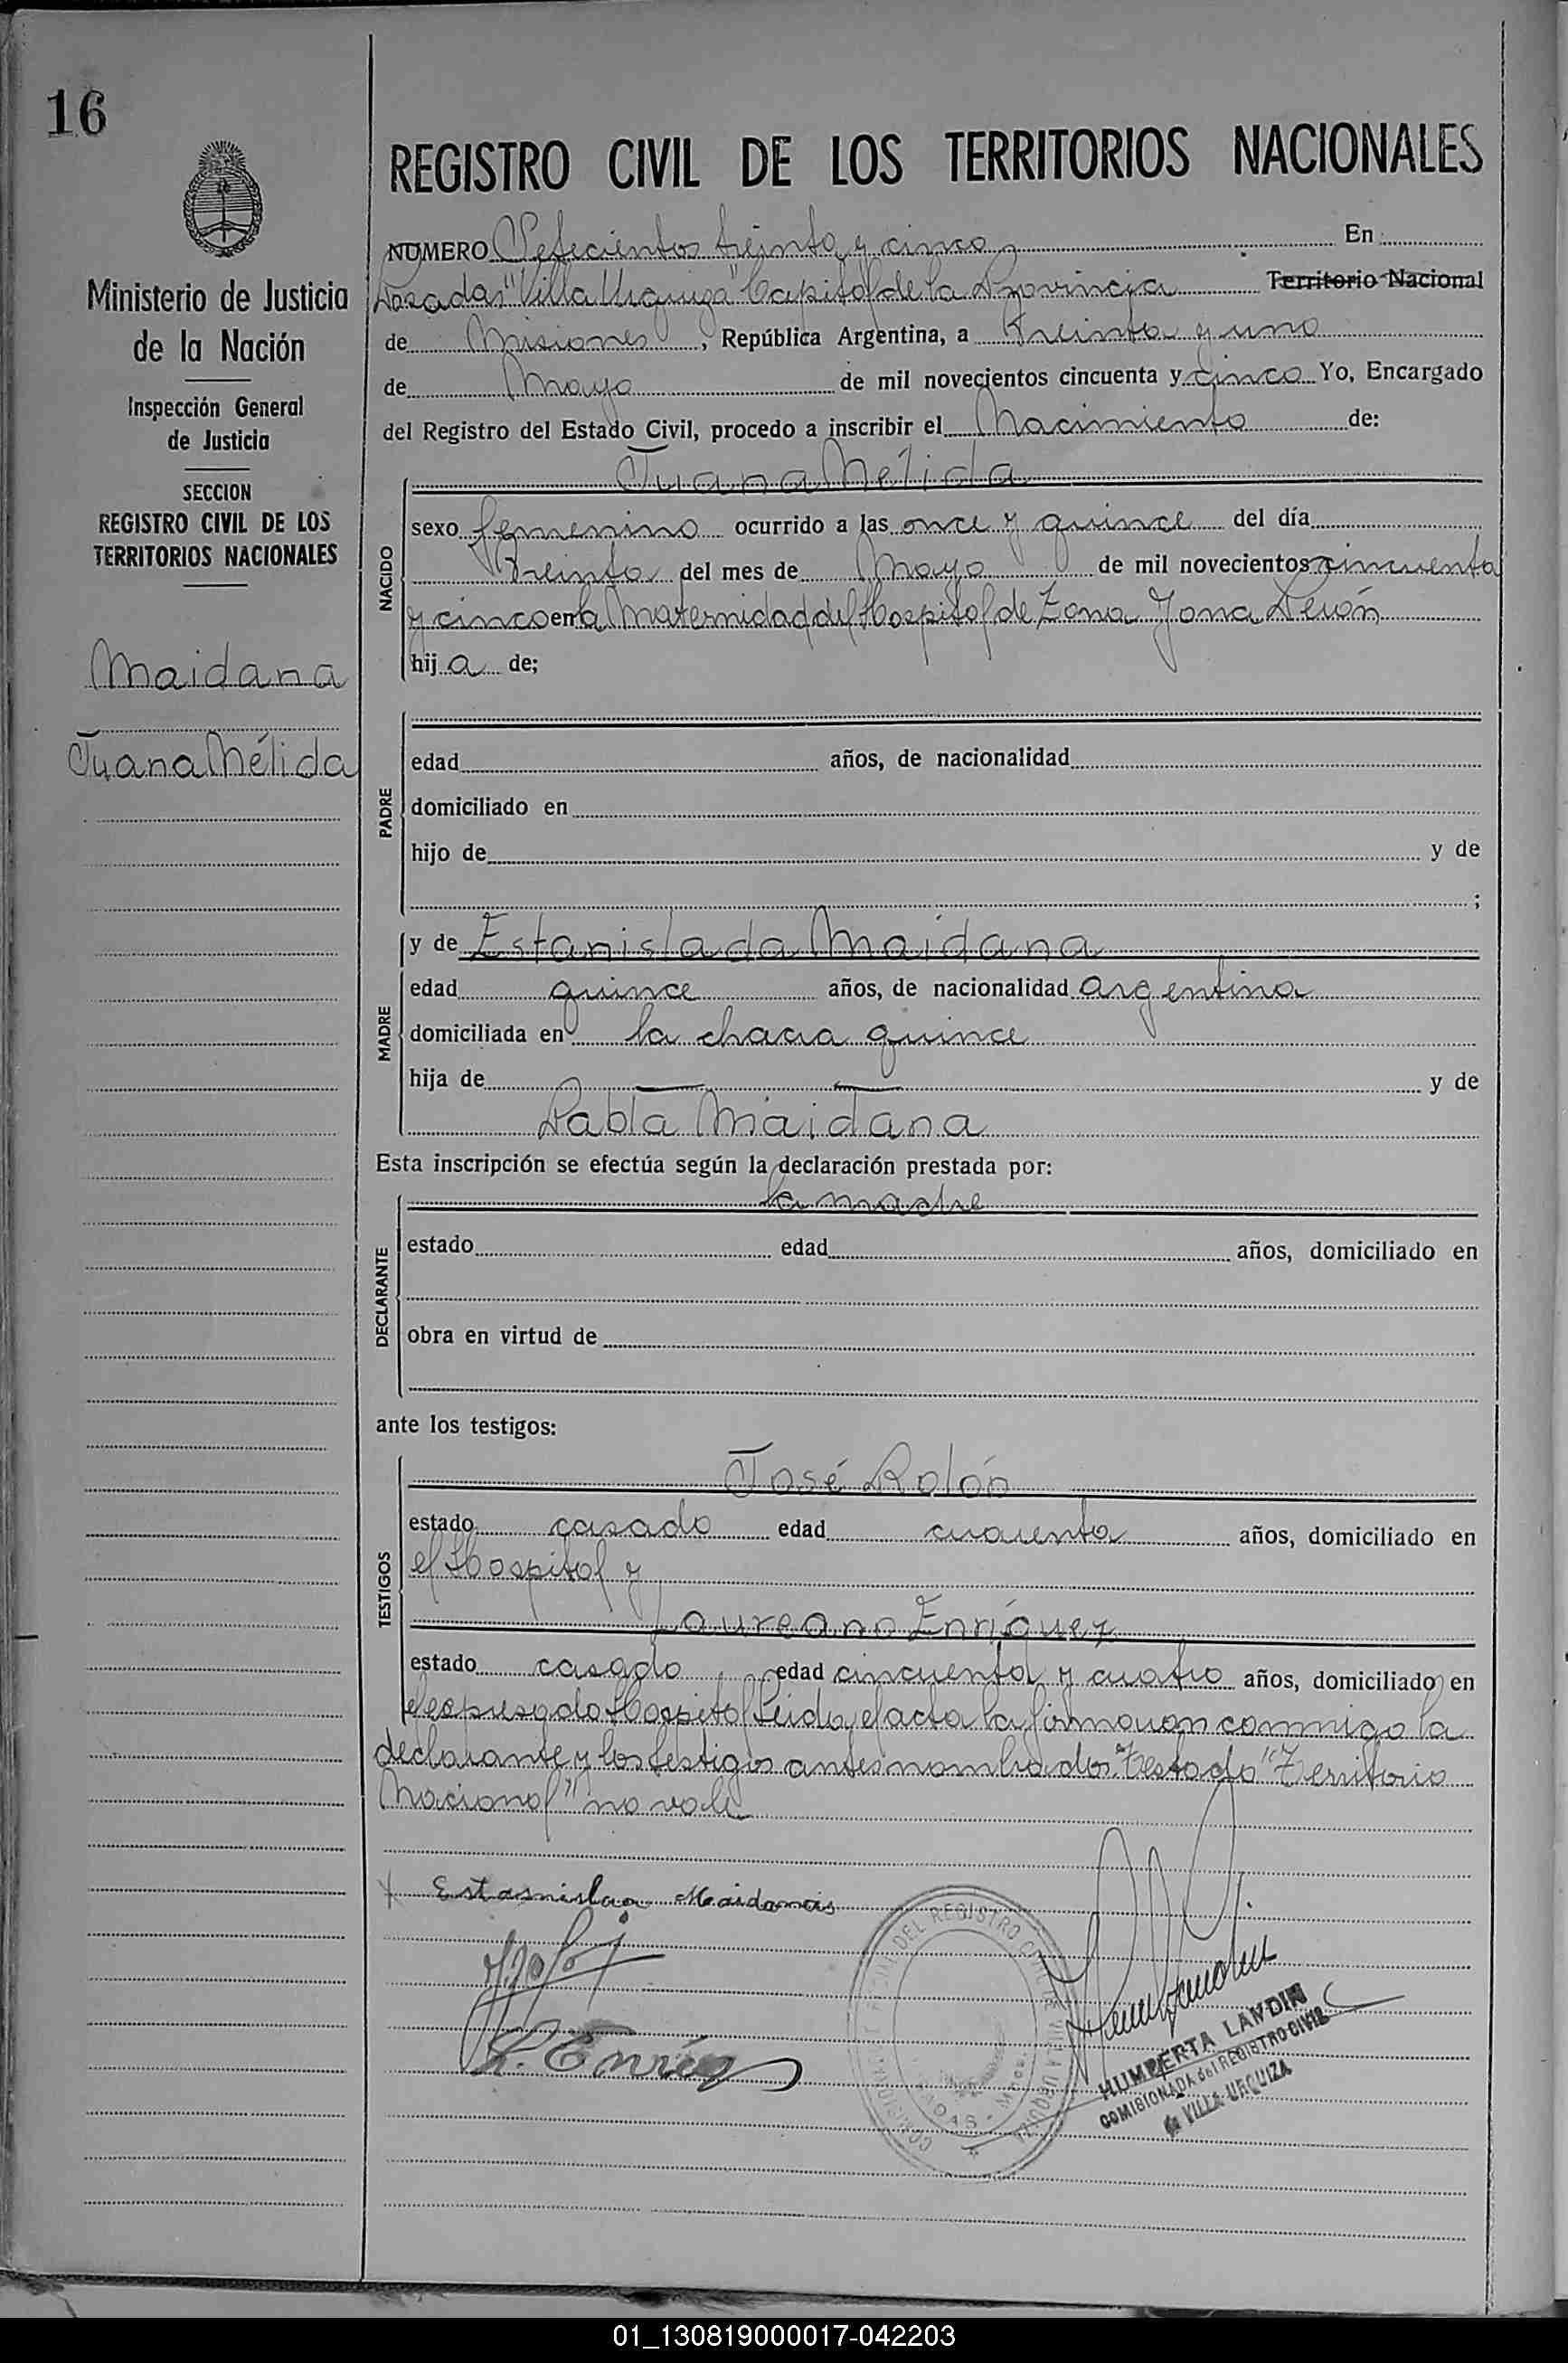 16
Ministerio de Justicia
de la Nación
Inspección General
de Justicia
SECCION
REGISTRO CIVIL DE LOS
TERRITORIOS NACIONALES
Maidana
Juana Nélida
REGISTRO CIVIL DE LOS TERRITORIOS NACIONALES
NUMERO Setecientos treinta y cinco En
Posadas "Villa Urquiza" Capital de la Provincia Territorio Nacional
de Misiones, República Argentina, a treinta y uno
de Mayo de mil novecientos cincuenta y cinco Yo, Encargado
del Registro del Estado Civil, procedo a inscribir el Nacimiento de:
Juana Nélida
NACIDO
sexo femenino ocurrido a las once y quince del día
treinta del mes de Mayo de mil novecientos cincuenta
y cinco en la Maternidad del Hospital de Zona
hija de;
PADRE
edad años, de nacionalidad
domiciliado en
hijo de y de
;
MADRE
y de Estanislada Maidana
edad quince años, de nacionalidad argentina
domiciliada en la chacra quince
hija de — — y de
Pabla Maidana
Esta inscripción se efectúa según la declaración prestada por:
la madre
DECLARANTE
estado edad años, domiciliado en
obra en virtud de
ante los testigos:
TESTIGOS
José Rolón
estado casado edad cuarenta años, domiciliado en
el Hospital y
Laureano Enríquez
estado casado edad cincuenta y cuatro años, domiciliado en
el expresado Hospital Leida el acta la firmaron conmigo la
declarante y los testigos antes nombrados. Testado "Territorio
Nacional" no vale
Estanislaa Maidana
L. Enríq
DEL REGISTRO CIVIL DE VILLA URQUIZA
HUMBERTA LANDIN
COMISIONADA del REGISTRO CIVIL
de VILLA URQUIZA
01_130819000017-042203